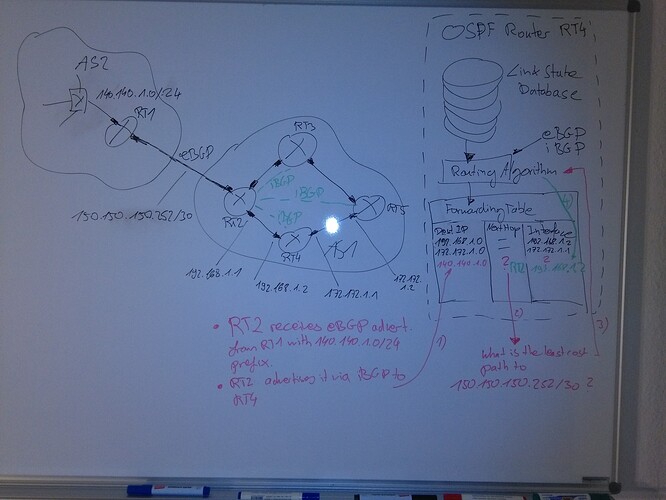 AS2
140.140.1.0/24
RT1
eBGP
150.150.150.252/30
RT3
iBGP
iBGP
iBGP
RT2
RT5
RT4
AS1
192.168.1.1
192.168.1.2
172.172.1.1
172.172.
1.2
• RT2 receives eBGP advert.
from RT1 with 140.140.1.0/24
prefix.
• RT2 advertises it via iBGP to
RT4
OSPF Router RT4
Link State
Database
eBGP
iBGP
Routing Algorithm
Forwarding Table
Dest IP Next Hop Interface
192.168.1.0 — 192.168.1.2
172.172.1.0 — 172.172.1.1
140.140.1.0 ? ?
RT2 192.168.1.2
1)
2)
3)
4)
What is the least cost
path to
150.150.150.252/30 ?